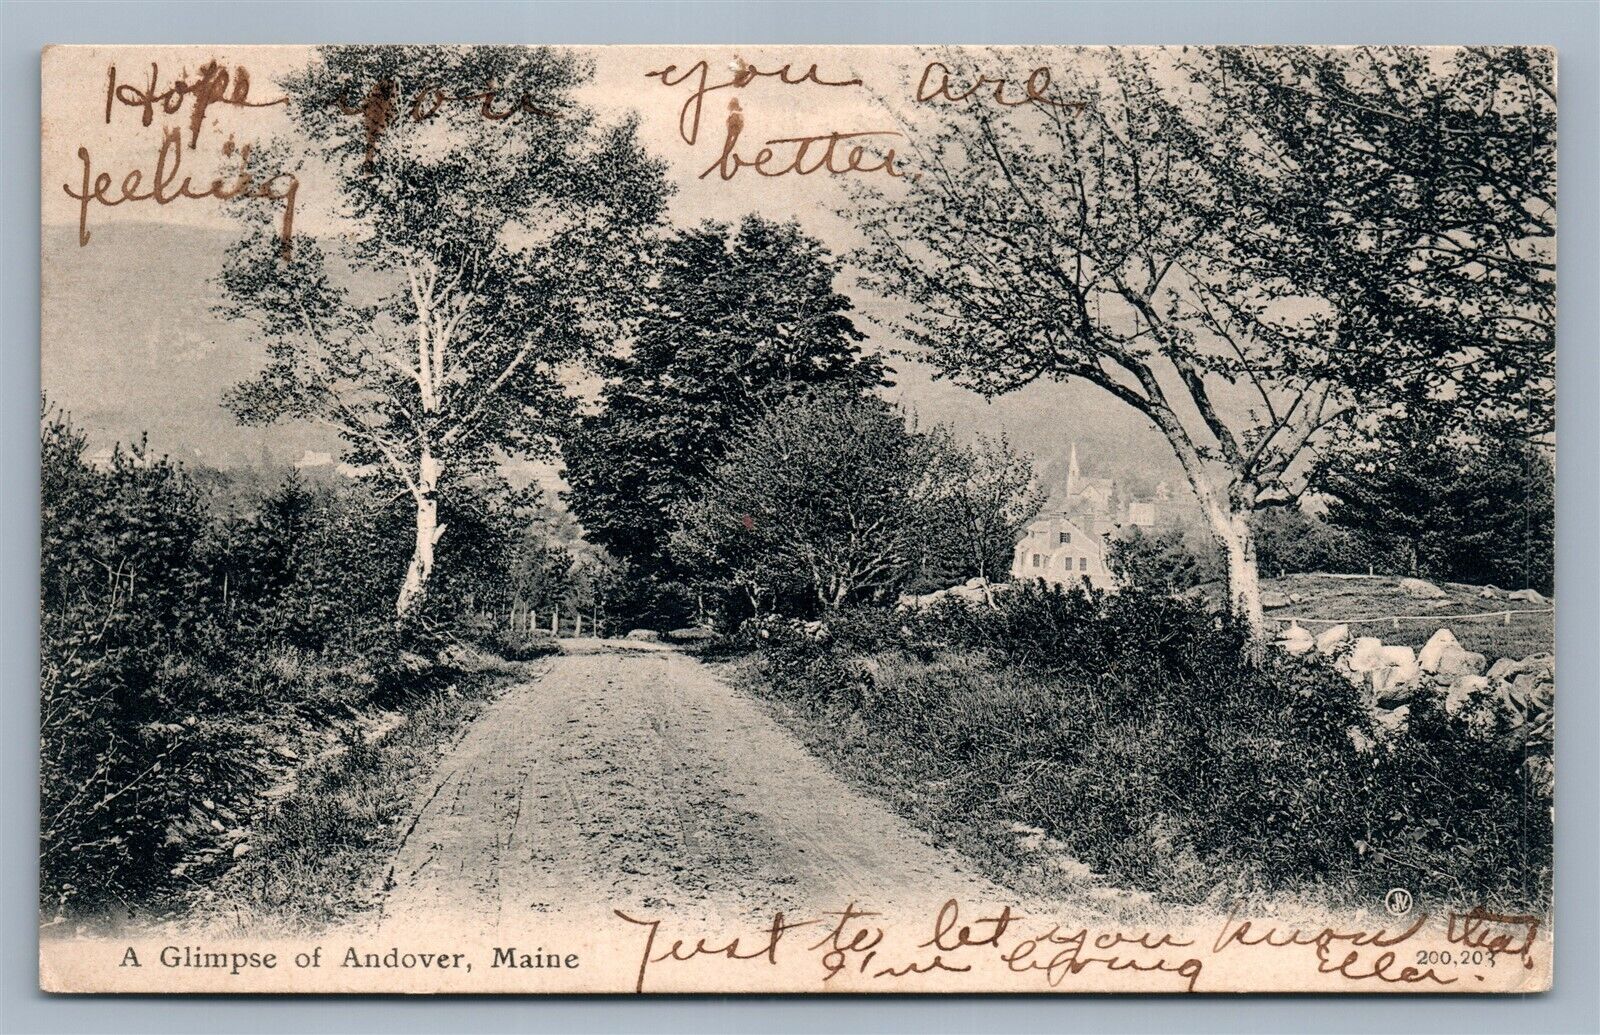 Hope you you are
feeling better.
Just to let you know that
I'm living Ella.
A Glimpse of Andover, Maine
200,203